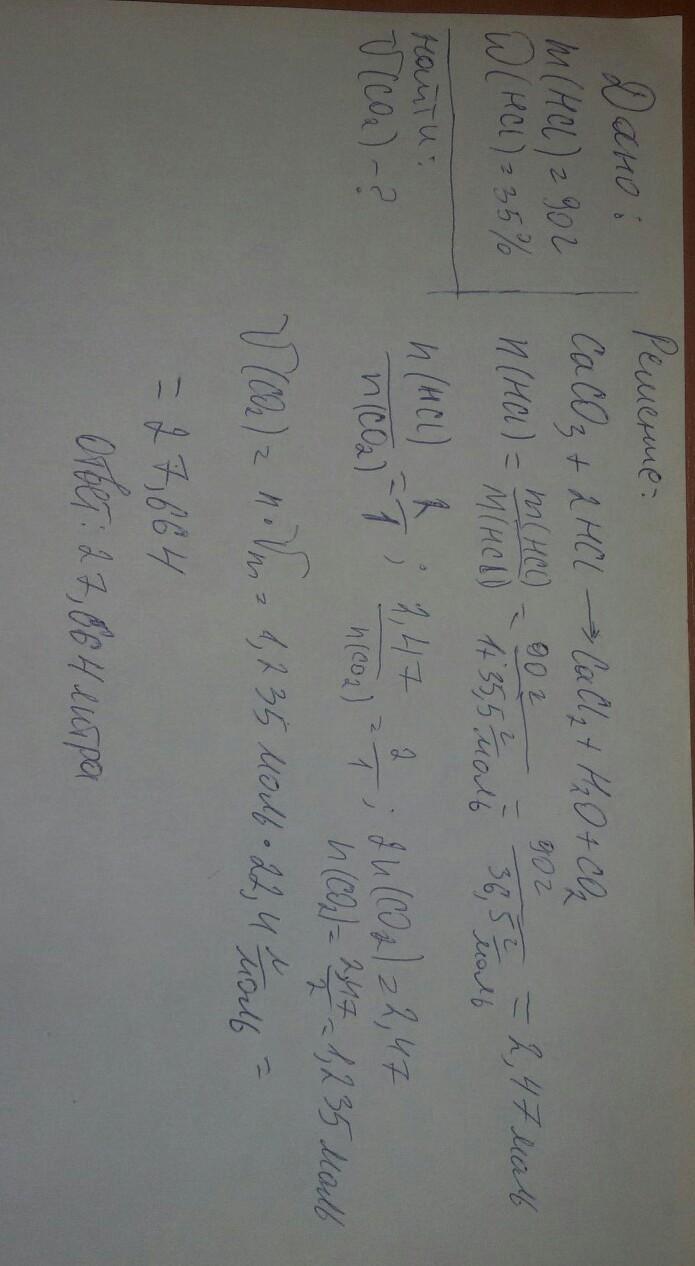 Дано:
m(HCl) = 90г
ω(HCl) = 35%
найти:
V(CO₂) - ?
Решение:
CaCO₃ + 2HCl → CaCl₂ + H₂O + CO₂
n(HCl) = m(HCl)/M(HCl) = 90г/1+35,5 г/моль = 90г/36,5 г/моль = 2,47 моль
n(HCl)/n(CO₂) = 2/1 ; 2,47/n(CO₂) = 2/1 ; 2n(CO₂) = 2,47
n(CO₂) = 2,47/2 = 1,235 моль
V(CO₂) = n·Vm = 1,235 моль · 22,4 л/моль =
= 27,664
Ответ: 27,664 литра